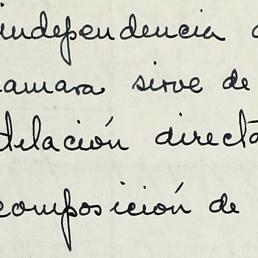 independencia
camara sirve de
tilación directa
composición de